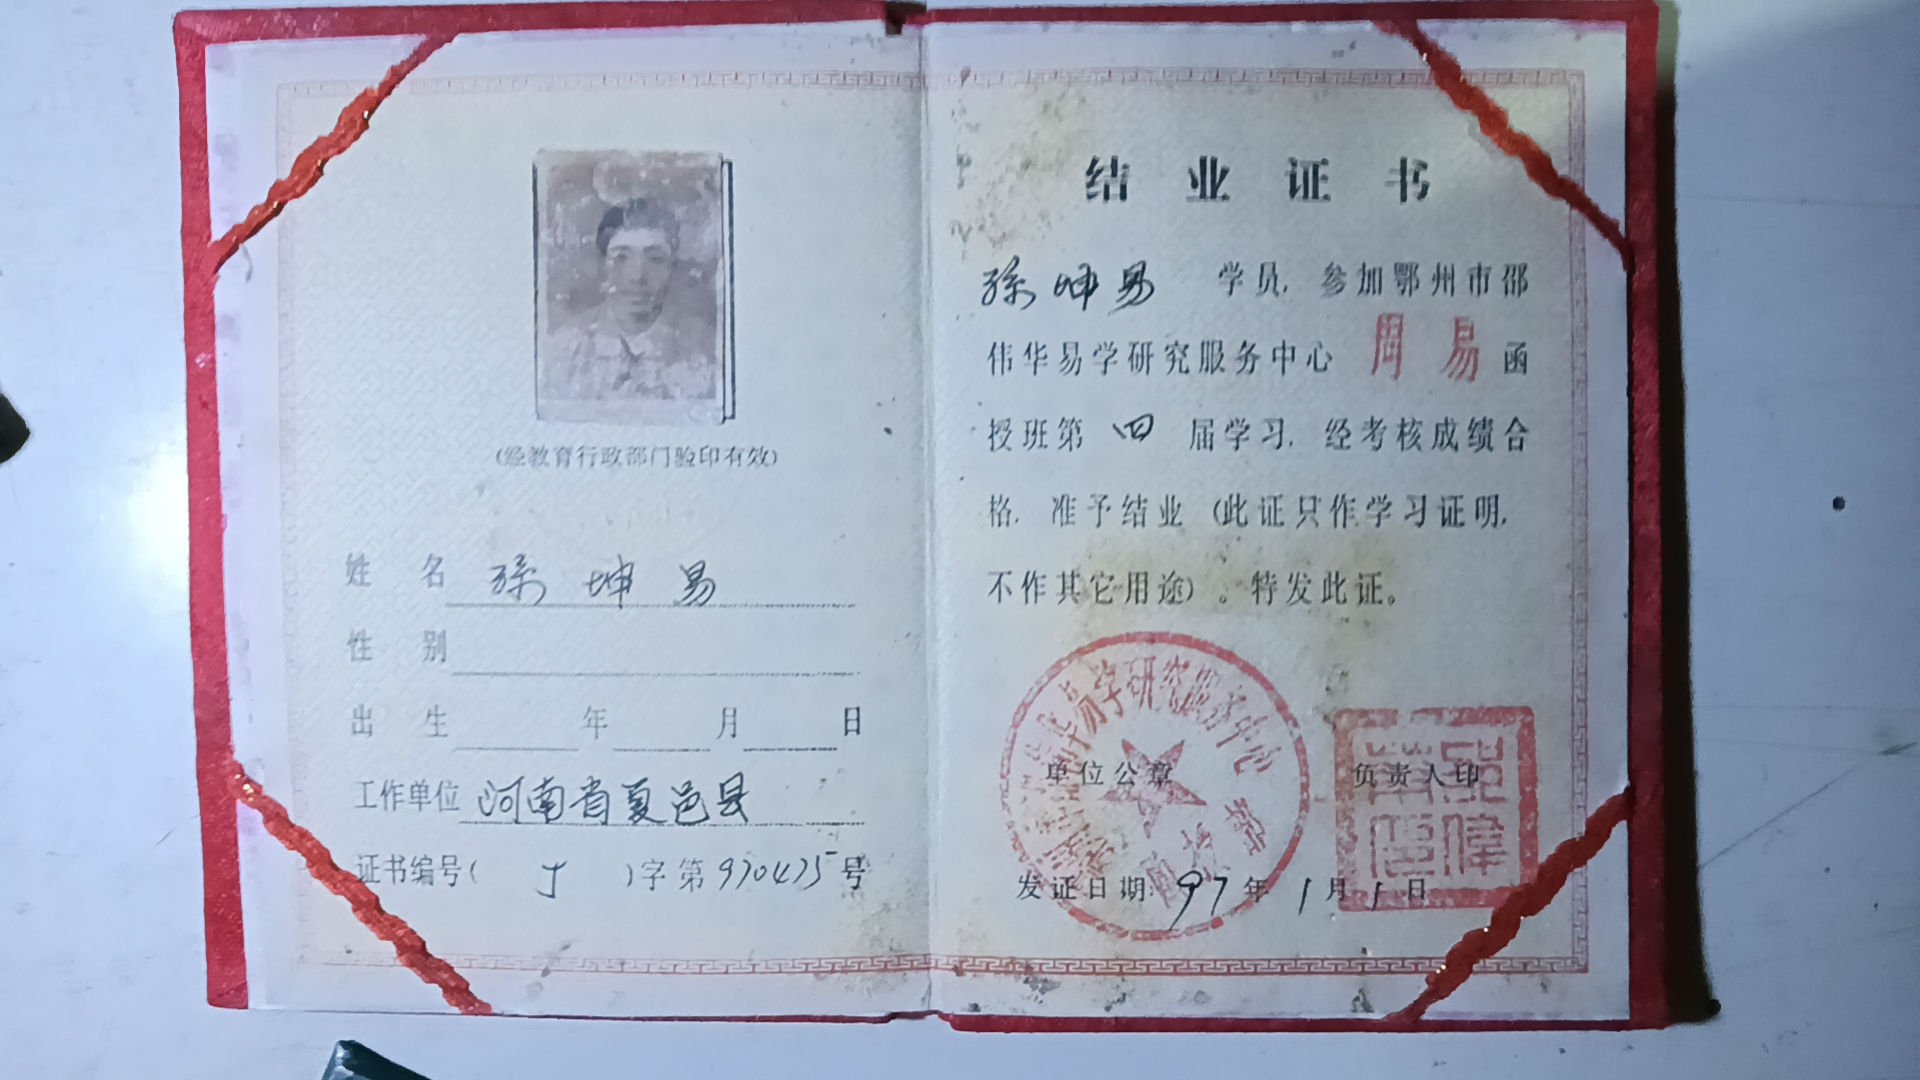 (经教育行政部门验印有效)
姓 名 孫坤易
性 别
出 生 年 月 日
工作单位 河南省夏邑县
证书编号( J )字第970475号
结业证书
孫坤易 学员,参加鄂州市邵
伟华易学研究服务中心 周易 函
授班第 四 届学习,经考核成绩合
格,准予结业(此证只作学习证明,
不作其它用途)。特发此证。
伟华易学研究服务中心
单位公章
负责人印
发证日期:97年1月1日